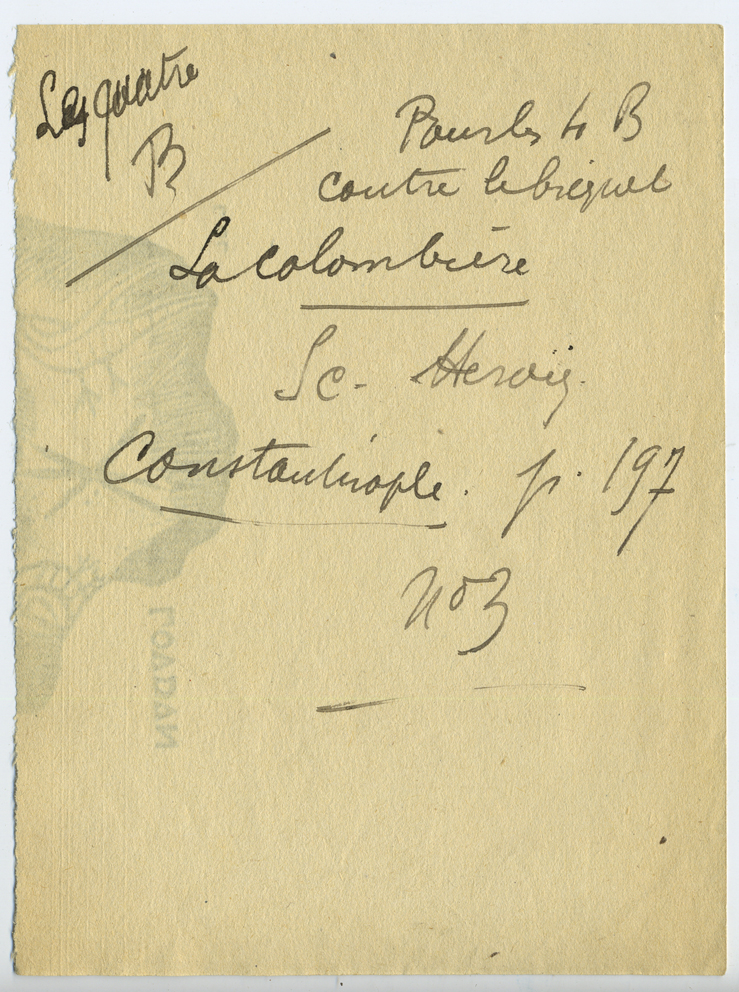 Les quatre
B
Pour les 4 B
contre le briquet
La Colombière
Sc. Hervig.
Constantinople. p. 197
no 3